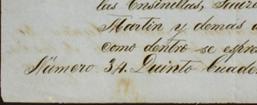 las Ensinillas, Juare
Martin y demas a
como dentro se espra
Número 34. Quinto Cuade